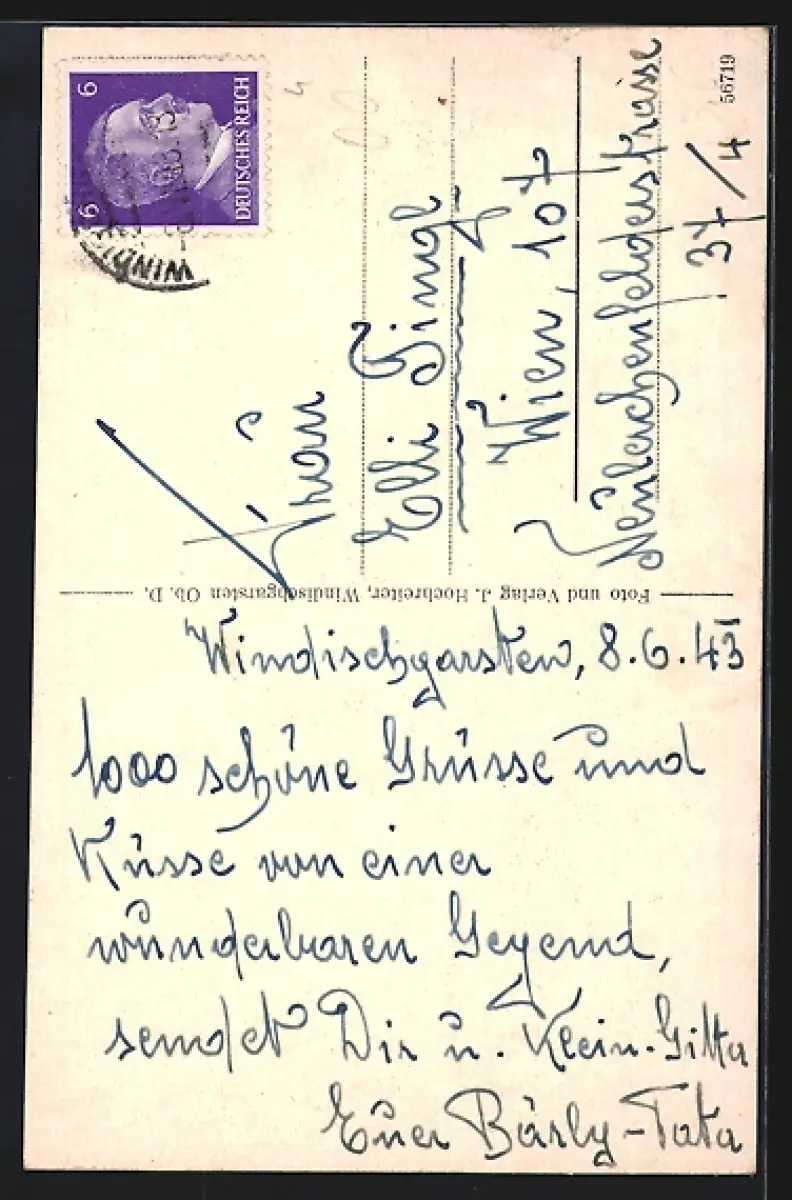 6
6
DEUTSCHES REICH
WINDI
56719
Frau
Elli
Wien, 107
Neulerchenfelderstrasse
37/4
Foto und Verlag J. Hochreiter, Windischgarsten Ob. D.
Windischgarsten, 8.6.43
1000 schöne Grüsse und
Küsse von einer
wunderbaren Gegend,
sendet Dir u. Klein-Gitta
Euer Bärly-Tata